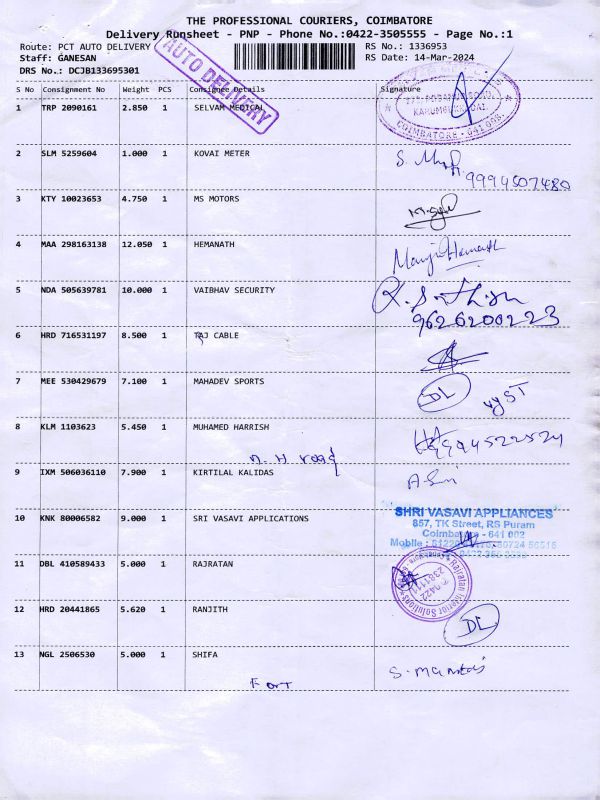 THE PROFESSIONAL COURIERS, COIMBATORE
Delivery Runsheet - PNP - Phone No.:0422-3505555 - Page No.:1
Route: PCT AUTO DELIVERY
RS No.: 1336953
Staff: GANESAN
RS Date: 14-Mar-2024
DRS No.: DCJB133695301
AUTO DELIVERY
S No Consignment No Weight PCS Consignee Details Signature
1 TRP 2090161 2.850 1 SELVAM MEDICAL
COIMBATORE
2 SLM 5259604 1.000 1 KOVAI METER
9994507480
3 KTY 10023653 4.750 1 MS MOTORS
4 MAA 298163138 12.050 1 HEMANATH
5 NDA 505639781 10.000 1 VAIBHAV SECURITY
9626200223
6 HRD 716531197 8.500 1 TAJ CABLE
7 MEE 530429679 7.100 1 MAHADEV SPORTS
DL
8 KLM 1103623 5.450 1 MUHAMED HARRISH
N. H road
9 IXM 506036110 7.900 1 KIRTILAL KALIDAS
10 KNK 80006582 9.000 1 SRI VASAVI APPLICATIONS
SHRI VASAVI APPLIANCES
857, TK Street, RS Puram
Coimbatore - 641 002
Mobile :
11 DBL 410589433 5.000 1 RAJRATAN
Rajratan Interior Solutions
12 HRD 20441865 5.620 1 RANJITH
DL
13 NGL 2506530 5.000 1 SHIFA
Fort